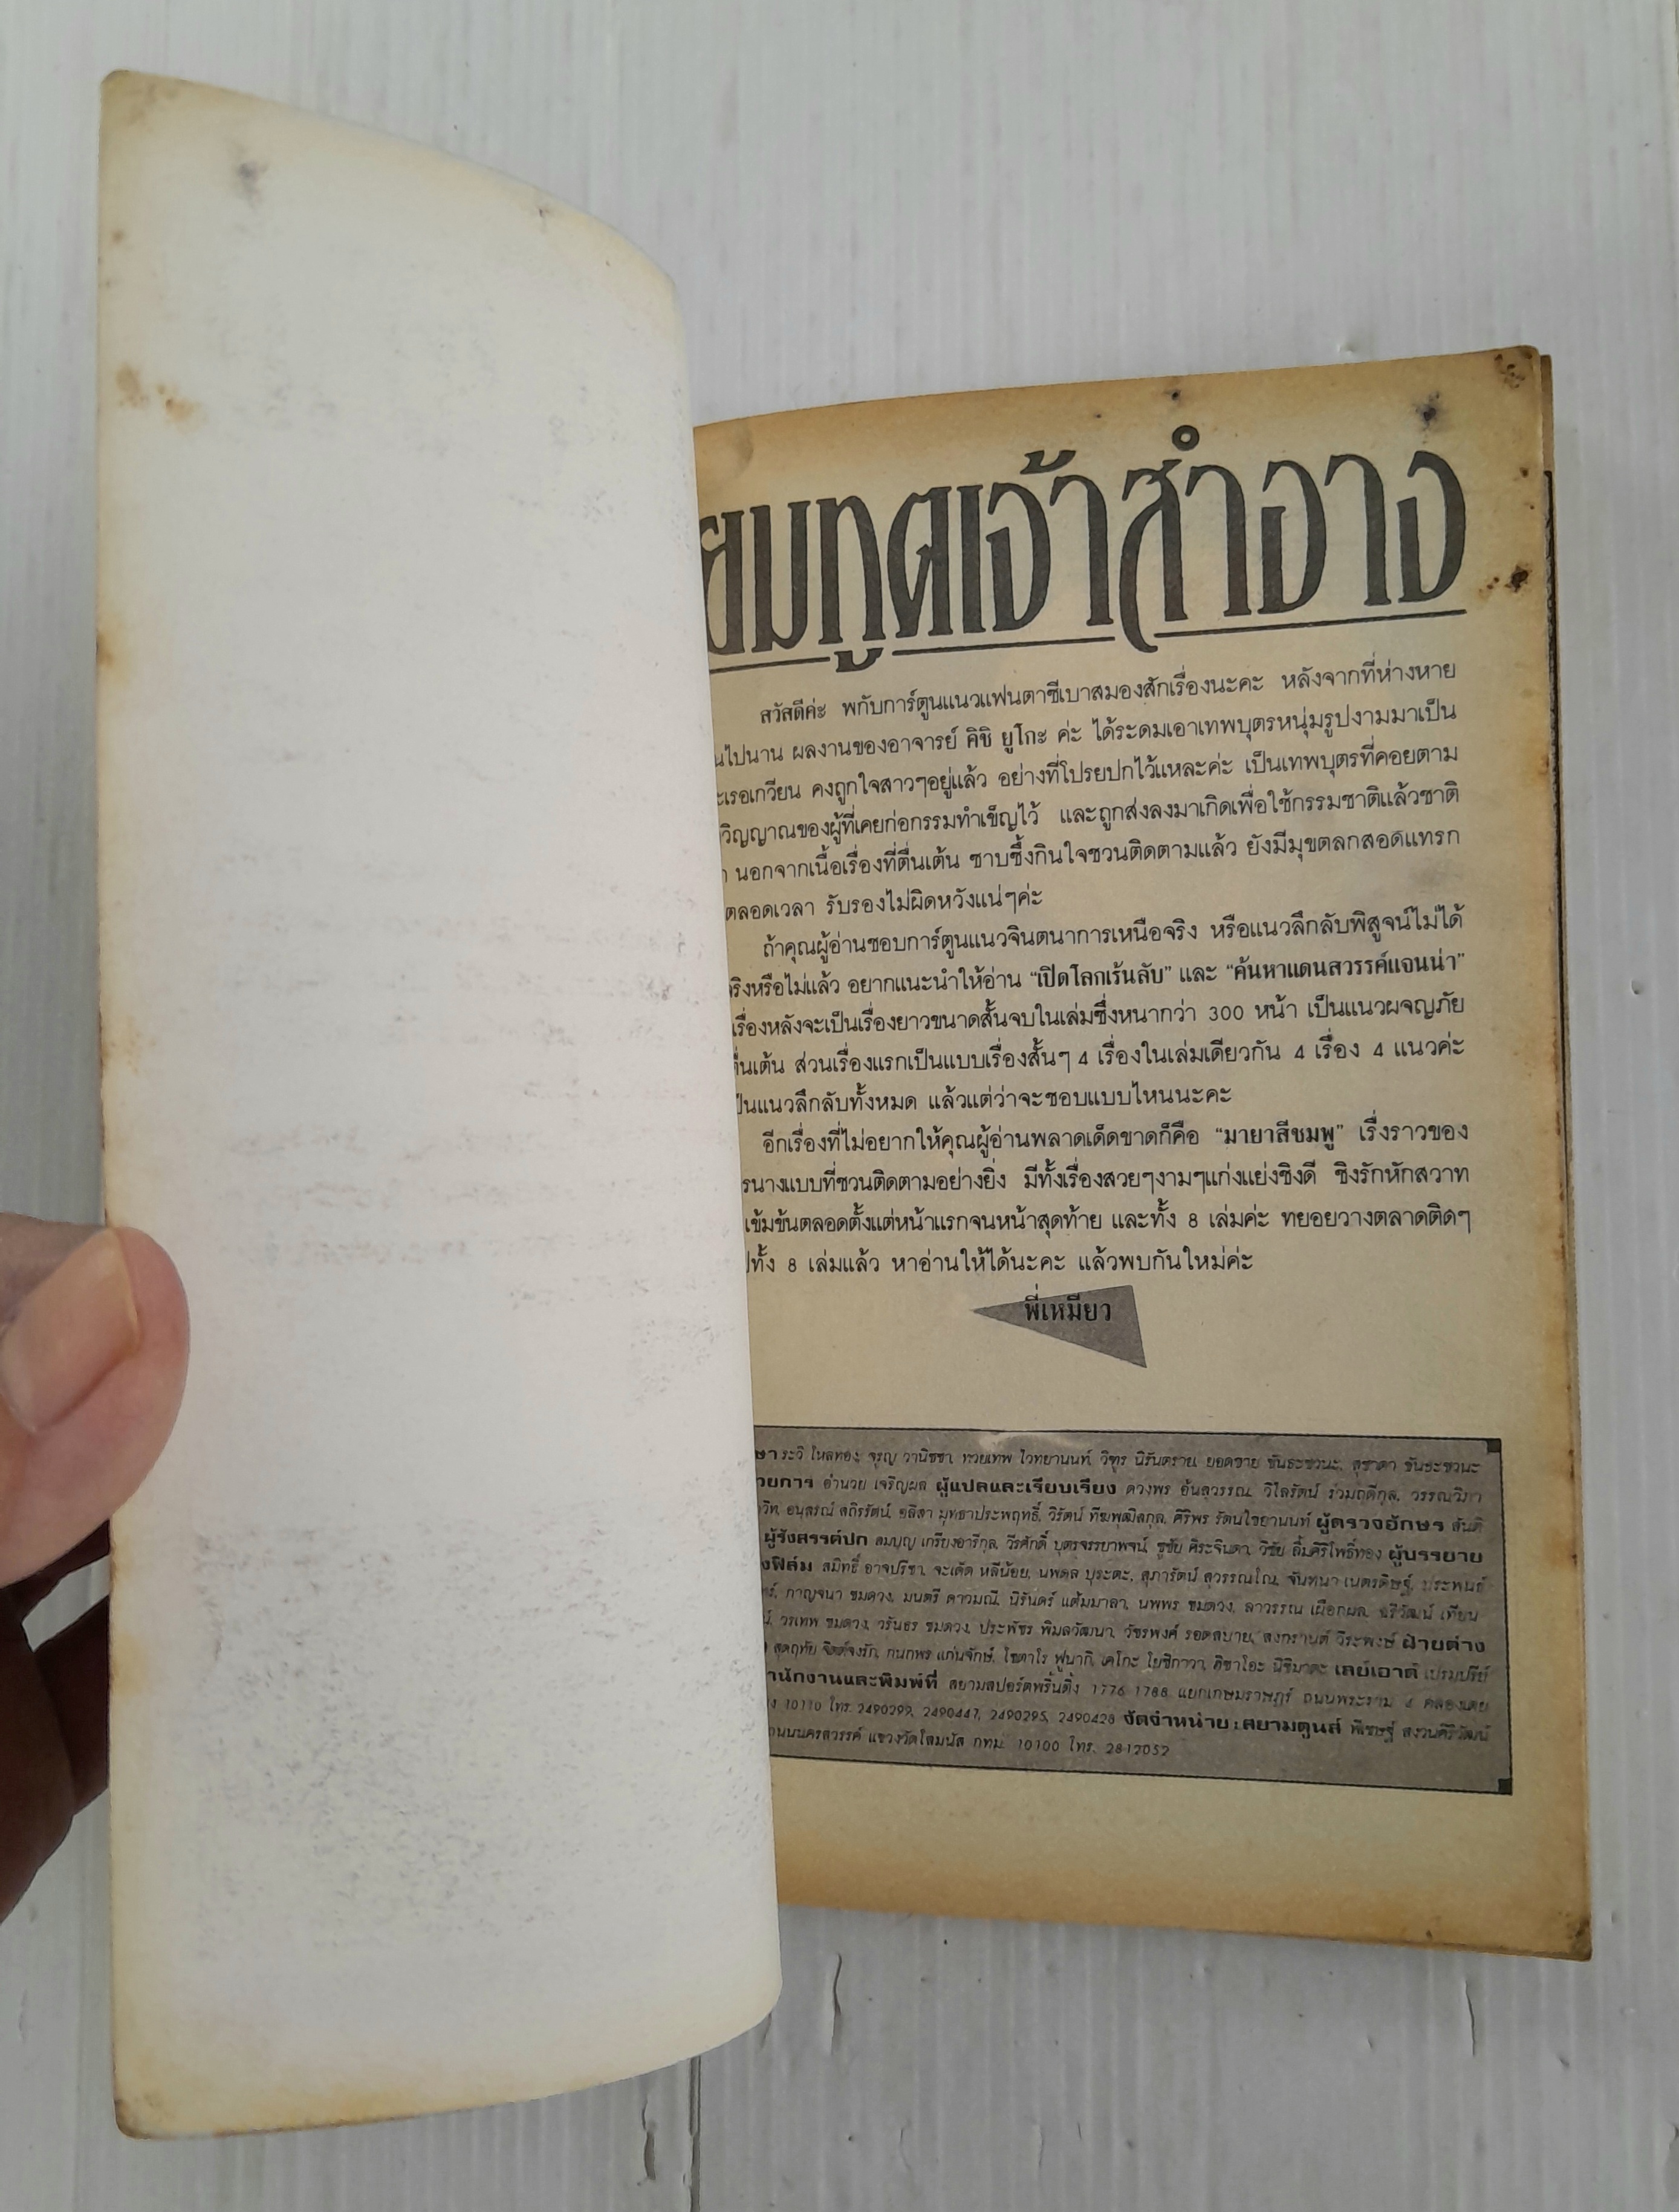 ยมทูตเจ้าสำอาง
สวัสดีค่ะ พกับการ์ตูนแนวแฟนตาซีเบาสมองสักเรื่องนะคะ หลังจากที่ห่างหาย
นไปนาน ผลงานของอาจารย์ คิชิ ยูโกะ ค่ะ ได้ระดมเอาเทพบุตรหนุ่มรูปงามมาเป็น
ะเรอเกวียน คงถูกใจสาวๆอยู่แล้ว อย่างที่โปรยปกไว้แหละค่ะ เป็นเทพบุตรที่คอยตาม
วิญญาณของผู้ที่เคยก่อกรรมทำเข็ญไว้ และถูกส่งลงมาเกิดเพื่อใช้กรรมชาติแล้วชาติ
นอกจากเนื้อเรื่องที่ตื่นเต้น ซาบซึ้งกินใจชวนติดตามแล้ว ยังมีมุขตลกสอดแทรก
ตลอดเวลา รับรองไม่ผิดหวังแน่ๆค่ะ
ถ้าคุณผู้อ่านชอบการ์ตูนแนวจินตนาการเหนือจริง หรือแนวลึกลับพิสูจน์ไม่ได้
ริงหรือไม่แล้ว อยากแนะนำให้อ่าน “เปิดโลกเร้นลับ” และ “ค้นหาแดนสวรรค์แจนน่า”
เรื่องหลังจะเป็นเรื่องยาวขนาดสั้นจบในเล่มซึ่งหนากว่า 300 หน้า เป็นแนวผจญภัย
ื่นเต้น ส่วนเรื่องแรกเป็นแบบเรื่องสั้นๆ 4 เรื่องในเล่มเดียวกัน 4 เรื่อง 4 แนวค่ะ
ป็นแนวลึกลับทั้งหมด แล้วแต่ว่าจะชอบแบบไหนนะคะ
อีกเรื่องที่ไม่อยากให้คุณผู้อ่านพลาดเด็ดขาดก็คือ “มายาสีชมพู” เรื่งราวของ
รนางแบบที่ชวนติดตามอย่างยิ่ง มีทั้งเรื่องสวยๆงามๆแก่งแย่งชิงดี ชิงรักหักสวาท
เข้มข้นตลอดตั้งแต่หน้าแรกจนหน้าสุดท้าย และทั้ง 8 เล่มค่ะ ทยอยวางตลาดติดๆ
ปทั้ง 8 เล่มแล้ว หาอ่านให้ได้นะคะ แล้วพบกันใหม่ค่ะ
พี่เหมียว
ษา ระวิ โหลทอง, จรูญ วานิชชา, ทวยเทพ ไวทยานนท์, วิฑูร นิรันตราย, ยอดชาย ขันธะชวนะ, สุชาดา ขันธะชวนะ
วยการ อำนวย เจริญผล ผู้แปลและเรียบเรียง ดวงพร อ้นสุวรรณ, วิไลรัตน์ ร่วมภดีกุล, วรรณวิภา
วิท, อนุสรณ์ สถิรรัตน์, อลิสา มุทธาประพฤทธิ์, วิรัตน์ ทีฆพุฒิสกุล, ศิริพร รัตนไชยานนท์ ผู้ตรวจอักษร สันติ
ผู้รังสรรค์ปก สมบุญ เกรียงอารีกุล, วีรศักดิ์ บุตรจรรยาพจน์, ชูชัย ศิระจินดา, วิชัย ลิ้มศิริโพธิ์ทอง ผู้บรรยาย
งฟิล์ม สมิทธิ์ อาจปรีชา, จะเด็ด หลีน้อย, นพดล บุระตะ, สุภารัตน์ สุวรรณโณ, จันทนา เนตรดิษฐ์, ประพนธ์
กาญจนา ชมดวง, มนตรี ดาวมณี, นิรันดร์ แต้มมาลา, นพพร ชมดวง, ลาวรรณ เผือกผล, ฉวีวัฒน์ เทียน
วรเทพ ชมดวง, วรันธร ชมดวง, ประพัชร พิมลวัฒนา, วัชรพงศ์ รอดสบาย, สงกรานต์ วีระพงษ์ ฝ่ายต่าง
สุดฤทัย จิตต์จงรัก, กนกพร แก่นจักษ์, โชตาโร ฟูนากิ, เคโกะ โยชิกาวา, ฮิซาโอะ นิชิมาตะ เลย์เอาต์ เปรมปรีย์
านักงานและพิมพ์ที่ สยามสปอร์ตพริ้นติ้ง 1776-1788 แยกเกษมราษฎร์ ถนนพระราม 4 คลองเตย
10110 โทร. 2490299, 2490447, 2490295, 2490428 จัดจำหน่าย : สยามตูนส์ พิเชษฐ์ สงวนศิริวัฒน์
ถนนนครสวรรค์ แขวงวัดโสมนัส กทม. 10100 โทร. 2812052